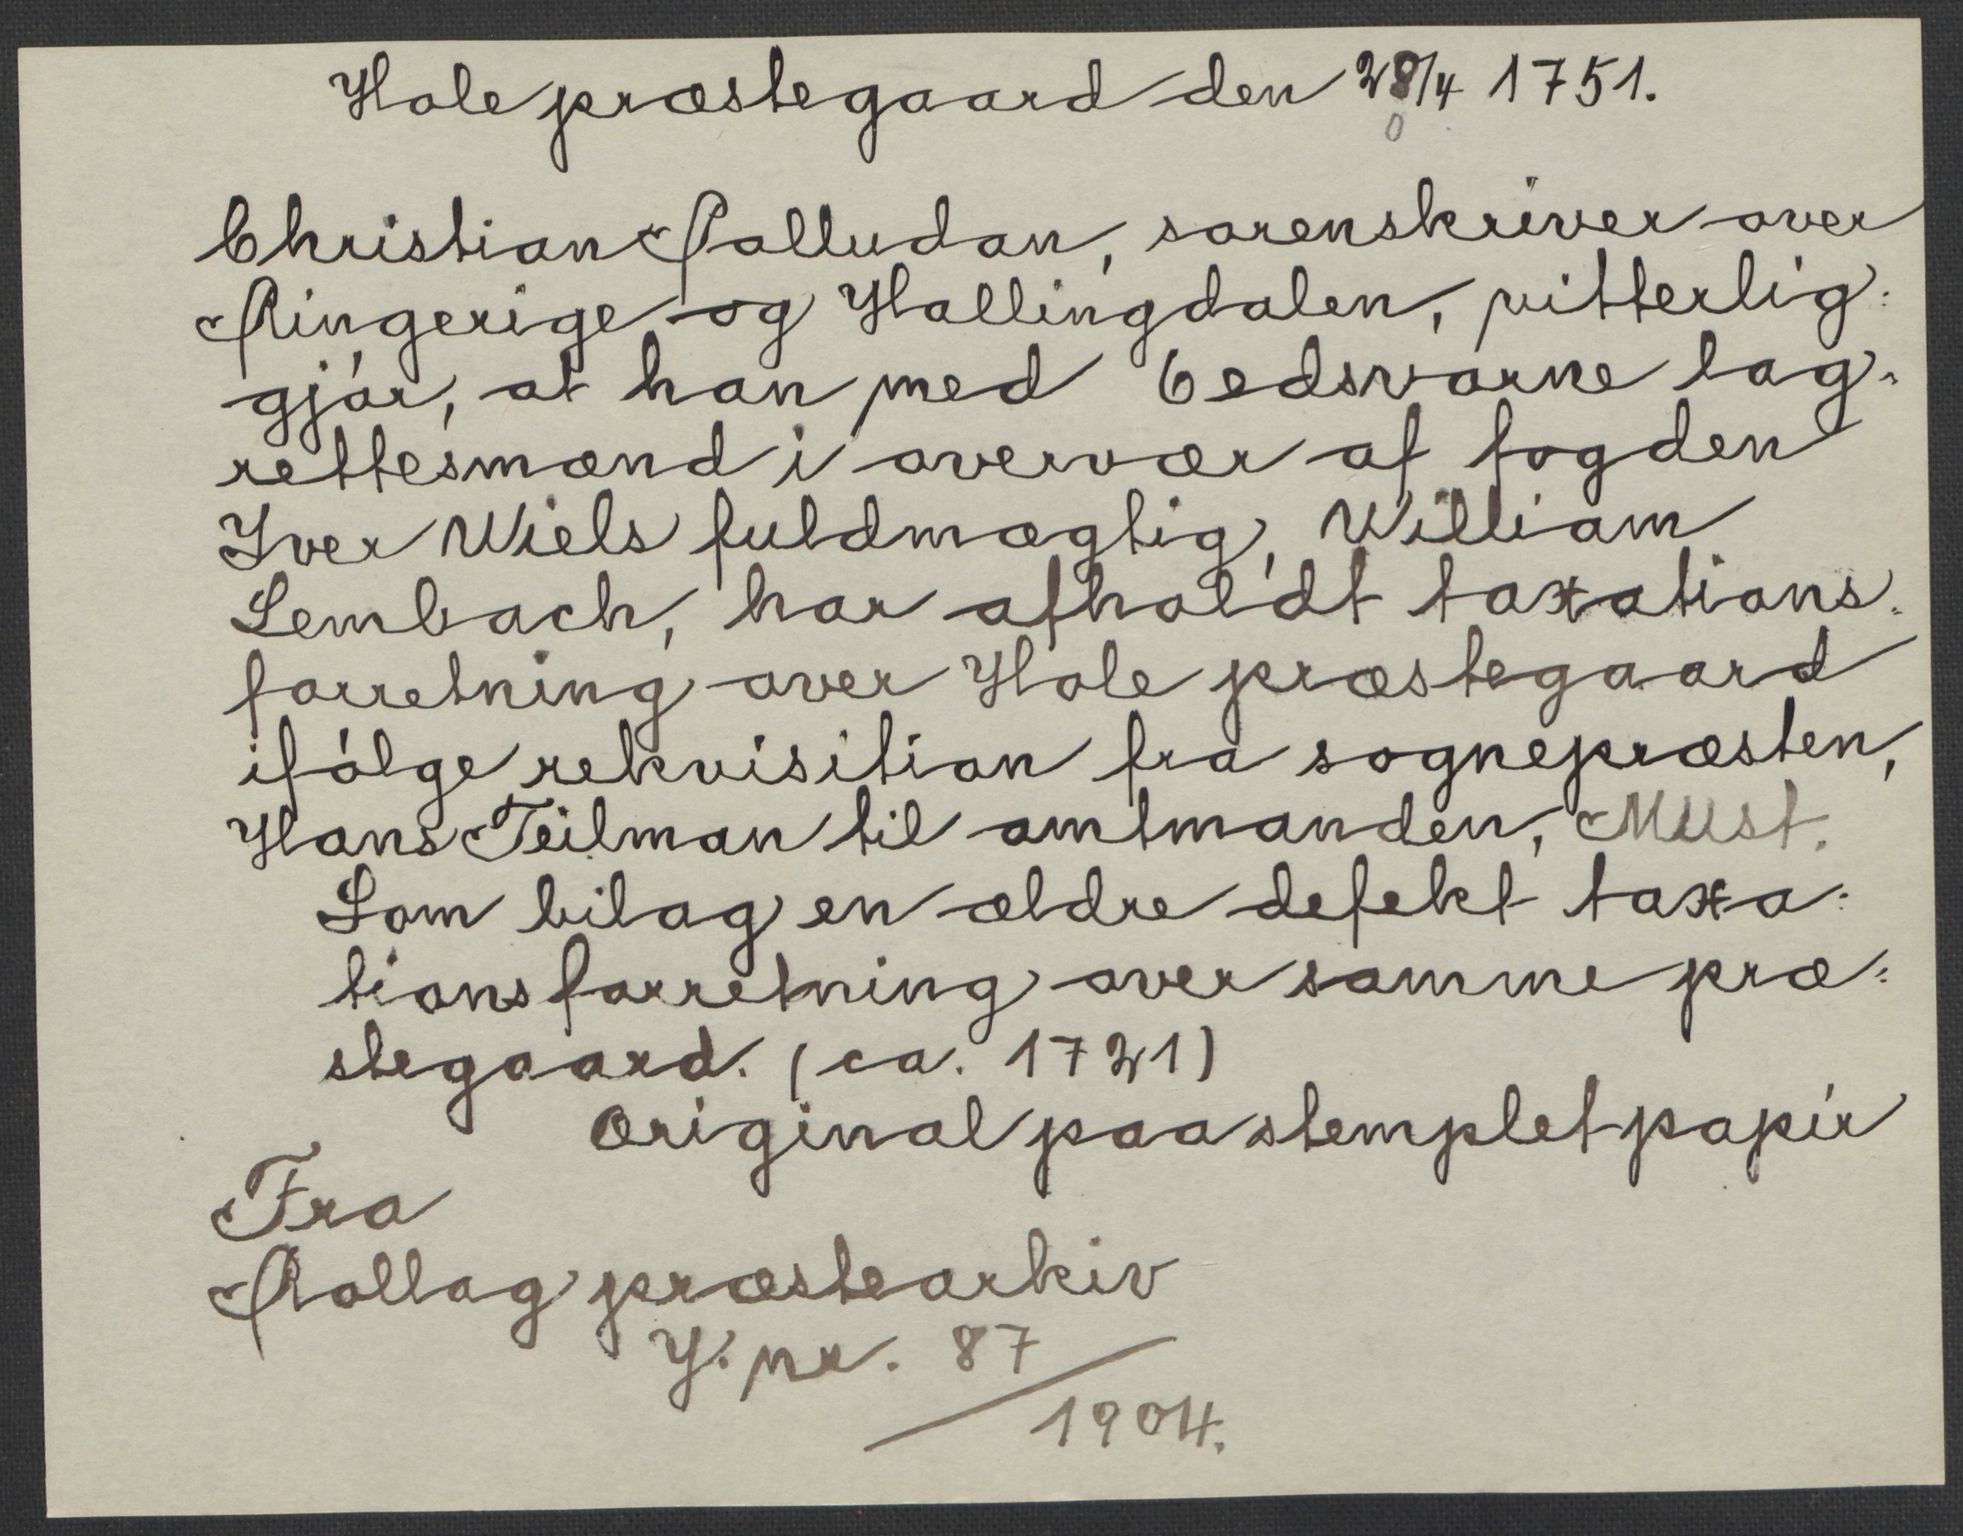 Hole præstegaard den 28/4 1751.
0
Christian Palludan, sorenskriver over
Ringerige og Hallingdalen, vitterlig=
gjór, at han med 6 edsvorne lag=
rettesmænd i overvær af fogden
Iver Wiels fuldmægtig, William
Lembach, har afholdt taxations=
forretning over Hole præstegaard
ifólge rekvisition fra sognepræsten,
Hans Teilman til amtmanden, Must.
Som bilag en ældre defekt taxa=
tionsforretning over samme præ=
stegaard. (ca. 1721)
Original paa stemplet papir
Fra
Rollag præstearkiv
J. nr. 87/
1904.